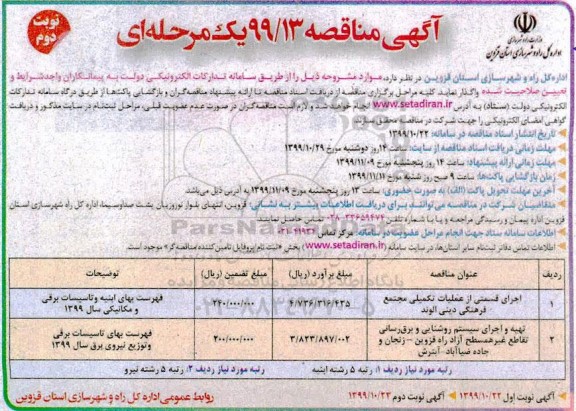 آگهی مناقصه ۹۹/۱۳ یک مرحله‌ای
نوبت دوم
وزارت راه و شهرسازی
اداره کل راه و شهرسازی استان قزوین
اداره کل راه و شهرسازی استان قزوین در نظر دارد، موارد مشروحه ذیل را از طریق سامانه تدارکات الکترونیکی دولت به پیمانکاران واجد شرایط و
تعیین صلاحیت شده واگذار نماید. کلیه مراحل برگزاری مناقصه از دریافت اسناد مناقصه تا ارائه پیشنهاد مناقصه‌گران و بازگشایی پاکت‌ها از طریق درگاه سامانه تدارکات
الکترونیکی دولت (ستاد) به آدرس www.setadiran.ir انجام خواهد شد و لازم است مناقصه‌گران در صورت عدم عضویت قبلی، مراحل ثبت‌نام در سایت مذکور و دریافت
گواهی امضای الکترونیکی را جهت شرکت در مناقصه محقق سازند.
تاریخ انتشار اسناد مناقصه در سامانه: ۱۳۹۹/۱۰/۲۲
مهلت زمانی دریافت اسناد مناقصه از سایت: ساعت ۱۴ روز دوشنبه مورخ ۱۳۹۹/۱۰/۲۹
مهلت زمانی ارائه پیشنهاد: ساعت ۱۴ روز پنجشنبه مورخ ۱۳۹۹/۱۱/۰۹
زمان بازگشایی پاکت‌ها: ساعت ۹ صبح روز شنبه مورخ ۱۳۹۹/۱۱/۱۱
آخرین مهلت تحویل پاکت (الف) به صورت حضوری: ساعت ۱۳ روز پنجشنبه مورخ ۱۳۹۹/۱۱/۰۹ به آدرس ذیل می‌باشد
متقاضیان شرکت در مناقصه می‌توانند برای دریافت اطلاعات بیشتر به نشانی: قزوین، انتهای بلوار نوروزیان پشت صداوسیما، اداره کل راه و شهرسازی استان
قزوین اداره پیمان و رسیدگی مراجعه و یا با شماره تلفن ۳۳۶۵۹۴۷۴-۰۲۸ تماس حاصل نمایند.
اطلاعات سامانه ستاد جهت انجام مراحل عضویت در سامانه: مرکز تماس ۴۱۹۳۴-۰۲۱
اطلاعات تماس دفاتر ثبت‌نام سایر استان‌ها، در سایت سامانه (www.setadiran.ir) بخش «ثبت نام/پروفایل تامین‌کننده/مناقصه‌گر» موجود است.
ردیف عنوان مناقصه مبلغ برآورد (ریال) مبلغ تضمین (ریال) توضیحات
۱ اجرای قسمتی از عملیات تکمیلی مجتمع فرهنگی دینی الوند ۴/۷۳۶/۳۱۶/۴۳۵ ۲۴۰/۰۰۰/۰۰۰ فهرست بهای ابنیه وتاسیسات برقی و مکانیکی سال ۱۳۹۹
۲ تهیه و اجرای سیستم روشنایی و برق‌رسانی تقاطع غیرهمسطح آزاد راه قزوین – زنجان و جاده ضیاآباد–آبترش ۳/۸۲۳/۸۹۷/۰۰۲ ۲۰۰/۰۰۰/۰۰۰ فهرست بهای تاسیسات برقی وتوزیع نیروی برق سال ۱۳۹۹
رتبه مورد نیاز ردیف ۱: رتبه ۵ رشته ابنیه رتبه مورد نیاز ردیف ۲: رتبه ۵ رشته نیرو
آگهی نوبت اول ۱۳۹۹/۱۰/۲۲ آگهی نوبت دوم ۱۳۹۹/۱۰/۲۳ روابط عمومی اداره کل راه و شهرسازی استان قزوین